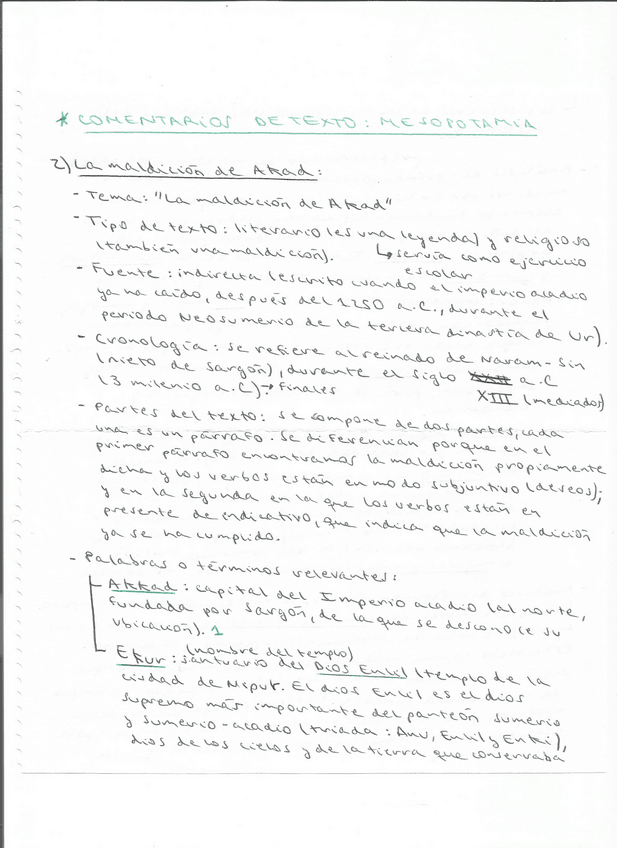 * COMENTARIOS DE TEXTO: MESOPOTAMIA
2) La maldición de Akad:
- Tema: "La maldición de Akad"
- Tipo de texto: literario (es una leyenda) y religioso
(también una maldición). ↳ servía como ejercicio
escolar
- Fuente: indirecta (escrito cuando el imperio acadio
ya ha caído, después del 1250 a.C., durante el
periodo Neosumerio de la tercera dinastía de Ur).
- Cronología: se refiere al reinado de Naram-Sin
(nieto de Sargón), durante el siglo XXII a.C
(3 milenio a.C) → finales XIII (mediados)
- Partes del texto: se compone de dos partes, cada
una es un párrafo. Se diferencian porque en el
primer párrafo encontramos la maldición propiamente
dicha y los verbos están en modo subjuntivo (deseos);
y en la segunda en la que los verbos están en
presente de indicativo, que indica que la maldición
ya se ha cumplido.
- Palabras o términos relevantes:
Akkad: capital del Imperio acadio (al norte,
fundada por Sargón, de la que se desconoce su
ubicación). 1
(nombre del templo)
Ekur: santuario del Dios Enlil (templo de la
ciudad de Nipur. El dios Enlil es el dios
supremo más importante del panteón sumerio
y sumerio-acadio (triada: Anu, Enlil y Enki),
dios de los cielos y de la tierra que conservaba